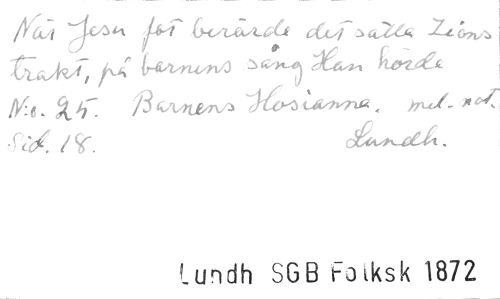 När Jesu fot berörde det sälla Zions
trakt, på barnens sång Han hörde
No. 25. Barnens Hosianna. mel. not.
Sid. 18. Lundh.
Lundh SGB Folksk 1872